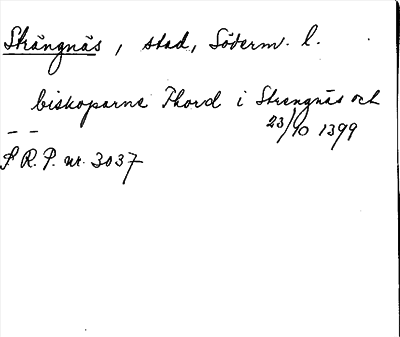 Strängnäs, stad, Söderm. l.
biskoparna Thord i Strengnäs och
— — 23/10 1399
S R. P. nr. 3037